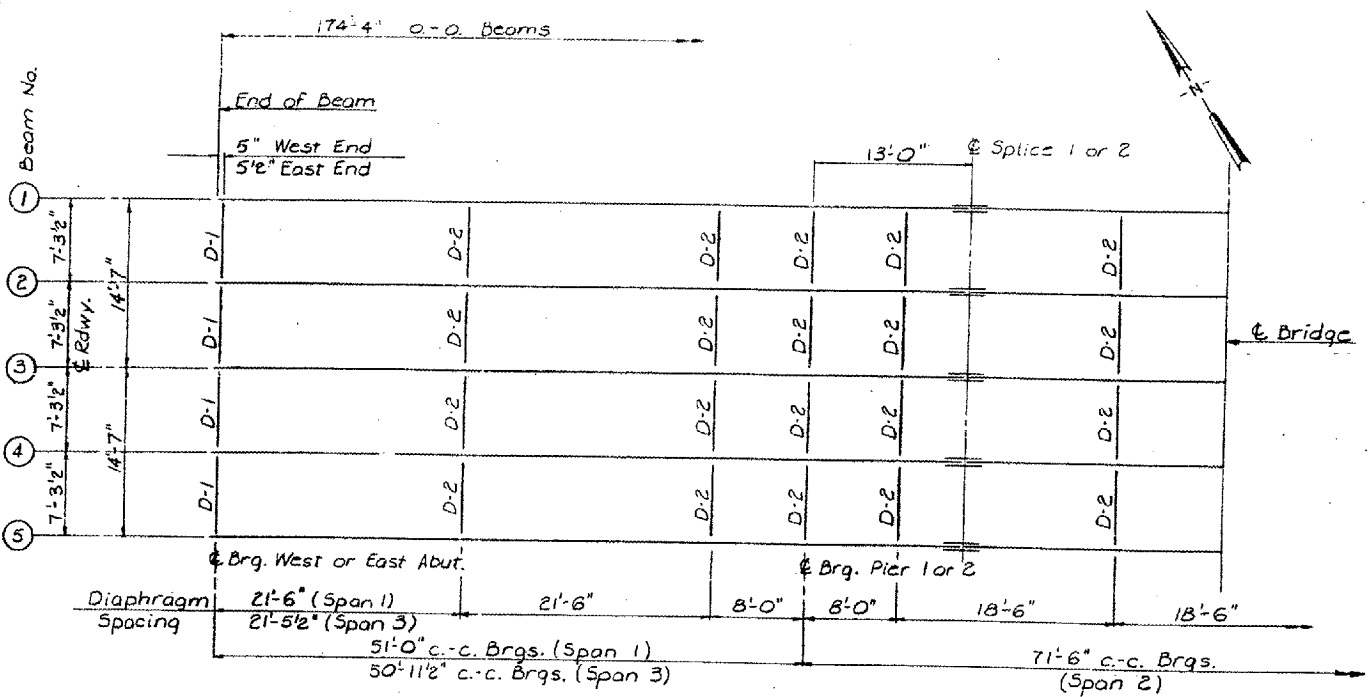 174'-4" O.-O. Beams
Beam No.
End of Beam
5" West End
5½" East End
N
13'-0"
℄ Splice 1 or 2
1
7'-3½"
D-1
D-2
D-2
D-2
D-2
14'-7"
2
7'-3½"
℄ Rdwy.
D-1
D-2
D-2
D-2
D-2
℄ Bridge
3
7'-3½"
D-1
D-2
D-2
D-2
D-2
14'-7"
4
7'-3½"
D-1
D-2
D-2
D-2
D-2
5
D-2
D-2
D-2
D-2
℄ Brg. West or East Abut.
℄ Brg. Pier 1 or 2
Diaphragm
Spacing
21'-6" (Span 1)
21'-5½" (Span 3)
21'-6"
8'-0"
8'-0"
18'-6"
18'-6"
51'-0" c.-c. Brgs. (Span 1)
50'-11½" c.-c. Brgs. (Span 3)
71'-6" c.-c. Brgs.
(Span 2)